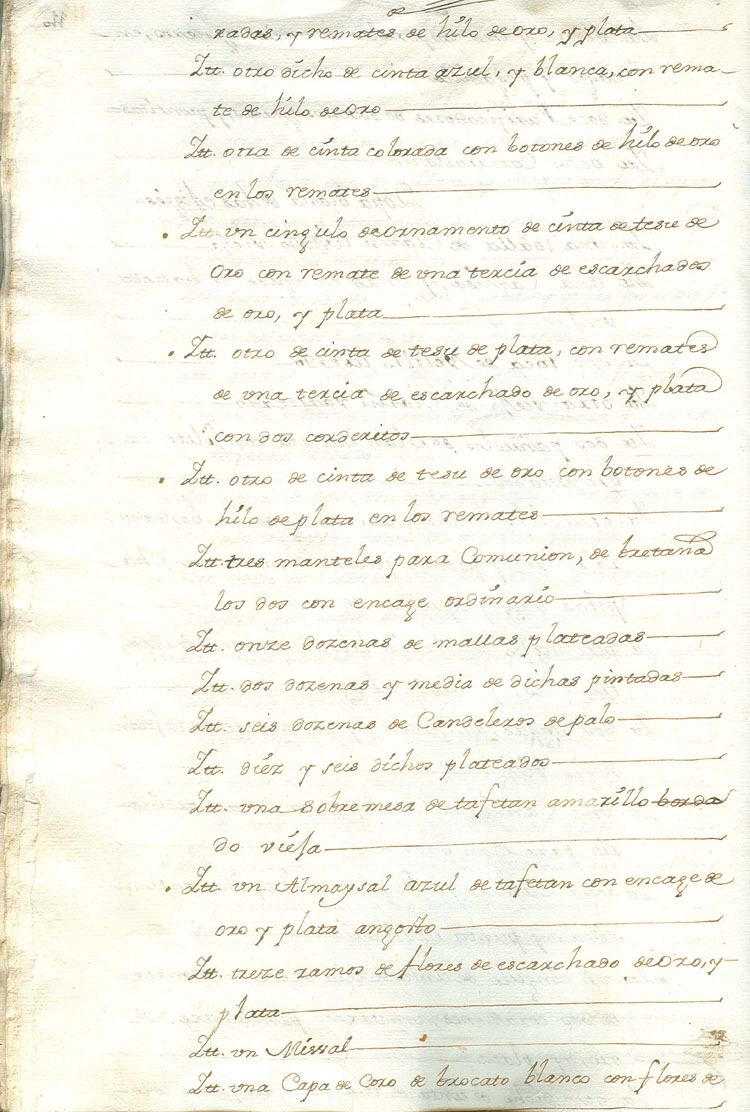 radas, y remates de hílo de oro, y plata
Itt. otro dicho de cinta azul, y blanca, con rema-
te de hilo de oro
Itt. otra de cinta colorada con botones de hílo de oro
en los remates
Itt. vn cingulo de ornamento de cínta de tesu de
oro con remate de vna tercia de escarchados
de oro, y plata
Itt. otro de cinta de tesu de plata, con remates
de vna tercia de escarchado de oro, y plata
con dos corderitos
Itt. otro de cinta de tesu de oro con botones de
hílo de plata en los remates
Itt. tres manteles para Comunion, de bretaña
los dos con encage ordinario
Itt. onze dozenas de mallas plateadas
Itt. dos dozenas y media de dichas pintadas
Itt. seis dozenas de Candeleros de palo
Itt. díez y seis díchos plateados
Itt. vna sobremesa de tafetan amarillo borda
do viéja
Itt. vn Almaysal azul de tafetan con encage de
oro y plata angosto
Itt. treze ramos de flores de escarchado de oro, y
plata
Itt. vn Missal
Itt. vna Capa de Coro de brocato blanco con flores de